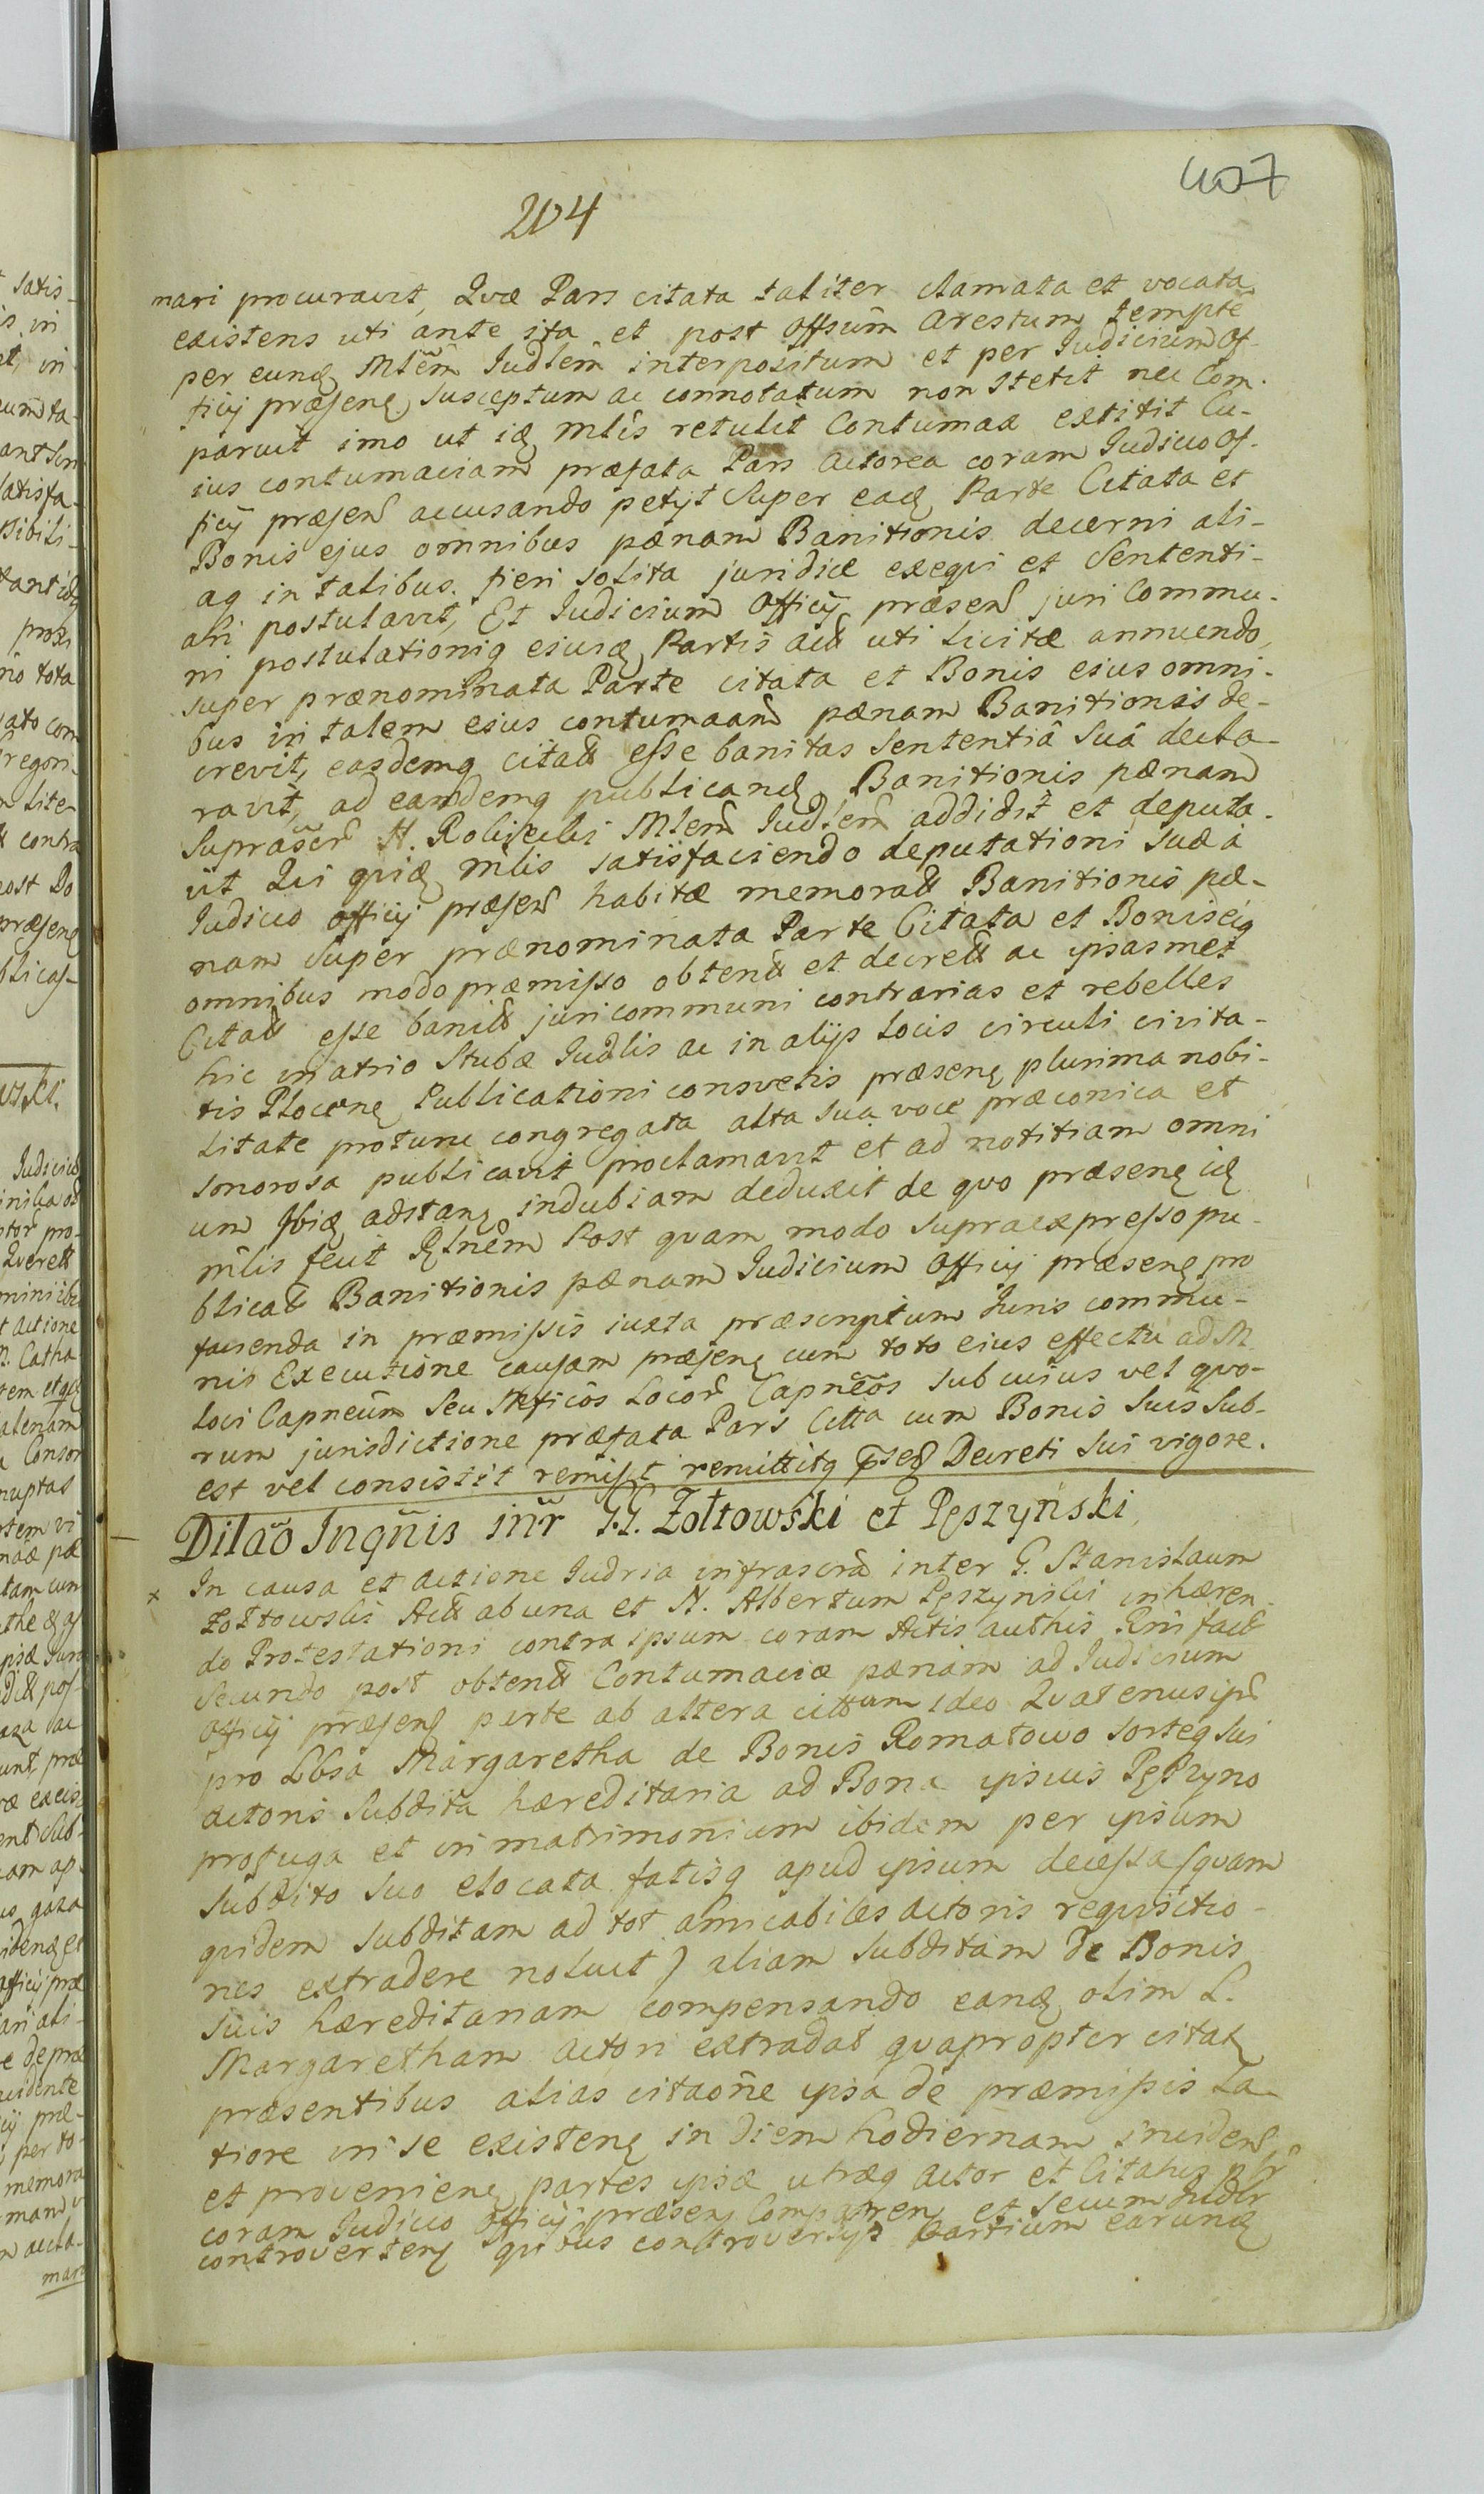 407
204
mari procuravit, Qvæ Pars citata taliter clamata et vocata
existens uti ante ita et post Offsum arestum tempte
per eundę Mlem Judlem interpositum et per Judicium Of-
ficij præsenę susceptum ac connotatum non stetit nec Com-
paruit imo ut idę Mlis retulit Contumax extitit Cu-
ius contumaciam præfata Pars Actorea coram Judicio Of-
ficij præsen accusando petijt Super eadę Parte Citata et
Bonis ejus omnibus pænam Banitionis decerni ali-
aq in talibus fieri solita juridice exeqvi et Sententi-
ari postulavit, Et Judicium Officij præsen juri Commu-
ni postulationiq eiusdę Partis act uti licitæ annuendo,
super prænominata Parte citata et Bonis eius omni-
bus in talem eius contumaciam pænam Banitionis de-
crevit, easdemq citat esse banitas Sententiâ Suâ decla-
ravit, ad eandemq publicandę Banitionis pænam
Suprascr N. Rolirecki Mlem Judlem addidit et deputa-
vit Qui qvidę Mlis satisfaciendo deputationi suæ à
Judicio Officij præsen habitæ memorat Banitionis pæ-
nam Super prænominata Parte Citata et Bonis eiq
omnibus modo præmisso obtent et decret ac ipsasmet
Citat esse banit juri communi contrarias et rebelles
hic in atrio Stubæ Judlis ac in alijs locis circuli civita-
tis Plocenę Publicationi consvetis præsenę plurima nobi-
litate protunc congregata alta sua voce præconica et
sonorosa publicavit proclamavit et ad notitiam omni
um Ibidę adstanę indubiam deduxit de qvo præsenę idę
mlis fecit Rlnem Post quam modo supra expresso pu-
blicat Banitionis pænam Judicium Officij præsenę pro
facienda in præmissis iuxta præscriptum Juris commu-
nis Executione causam præsenę cum toto eius effectu ad M
loci Capneum Seu Mficos Locor Capneos sub cuius vel qvo-
rum jurisdictione præfata Pars Citta cum Bonis Suis Sub-
est vel consistit remisit remittitq psent Decreti Sui vigore.
Dilao Inqnis inr GG. Żołtowski et Pęszyński
x In causa et actione Judria infrascra inter G. Stanislaum
Żołtowski Act ab una et N. Albertum Pęszynski inhæren-
do Protestationi contra ipsum coram Actis authis Plni fact
Secundo post obtent Contumaciæ pænam ad Judicium
Officij præsenę parte ab altera citum ideo Qvatenus ips
pro Lbsa Margaretha de Bonis Romatowo sorteq sui
actoris Subdita hæreditaria ad Bona ipsius Pęszyno
profuga et in matrimonium ibidem per ipsum
subdito suo elocata fatisq apud ipsum decessa (quam
quidem subditam ad tot amicabiles actoris reqvisitio-
nes extradere noluit) aliam subditam de Bonis
suis hæreditariam compensando eandę olim L.
Margaretham actori extradat qvapropter citatę
præsentibus alias citaone ipsa de præmissis la-
tiore in se existenę in diem hodiernam incidenę
et provenienę partes ipsæ utræq actor et Citatus plr
coram Judicio Officij præsenę Comparenę et secum Judlr
controvertenę quibus controversijs partium earundę